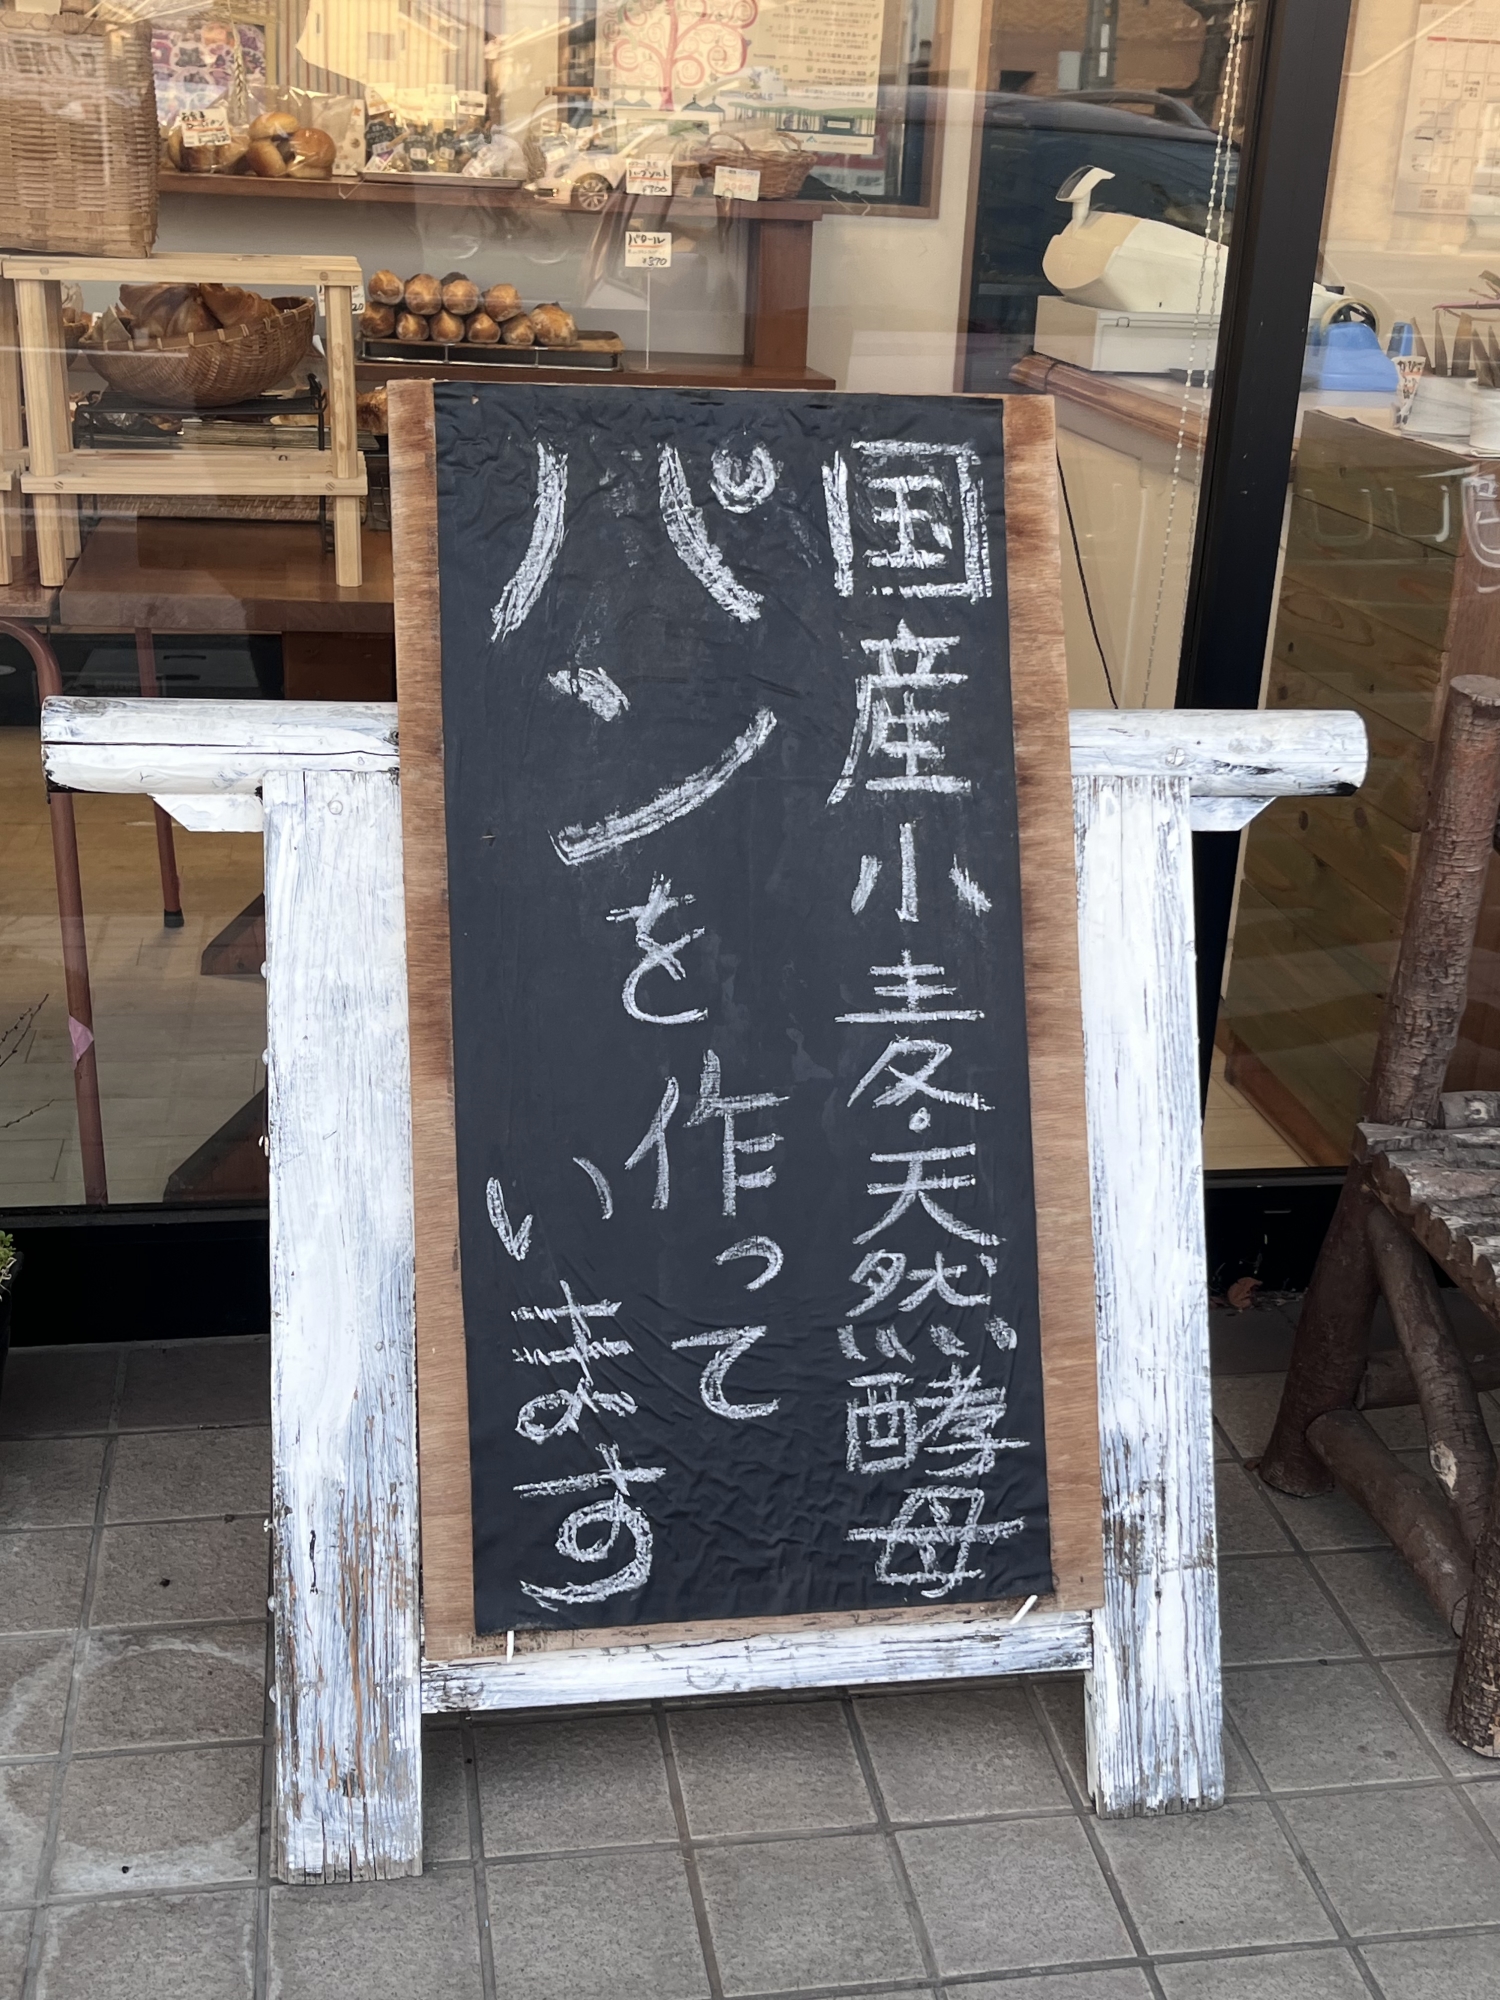 国産小麦・天然酵母
パンを作って
います
バタール
¥370
¥700
GOALS